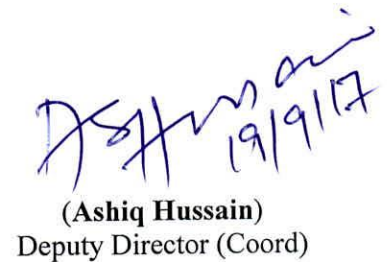 AsHussain
19/9/17
(Ashiq Hussain)
Deputy Director (Coord)